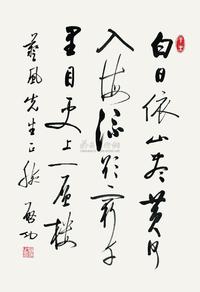 白日依山尽黄河
入海流欲穷千
里目更上一层楼
艺风先生正腕
启功